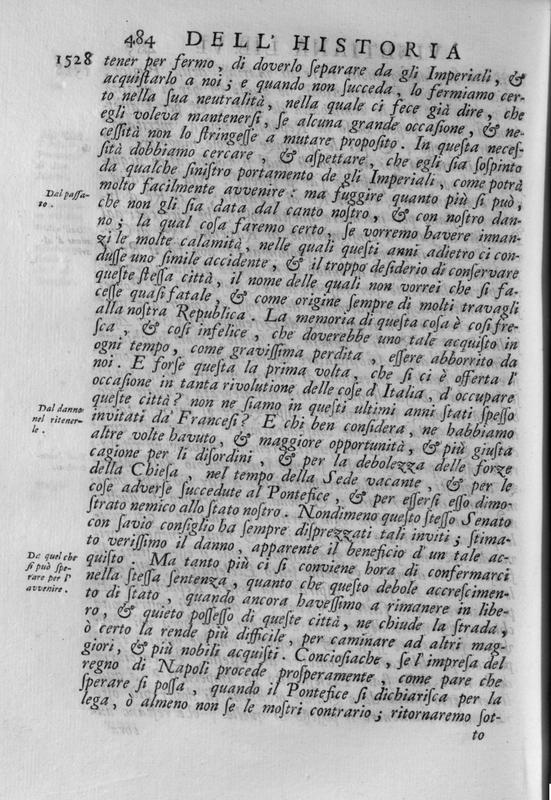 484 DELL' HISTORIA
1528
tener per fermo, di doverlo ſeparare da gli Imperiali, &
acquiſtarlo a noi; e quando non ſucceda, lo fermiamo cer-
to nella ſua neutralità, nella quale ci fece già dire, che
egli voleva mantenerſi, ſe alcuna grande occaſione, & ne-
ceſſità non lo ſtringeſſe a mutare propoſito. In queſta neceſ-
ſità dobbiamo cercare, & aſpettare, che egli ſia ſoſpinto
da qualche ſiniſtro portamento de gli Imperiali, come potrà
molto facilmente avvenire: ma fuggire quanto più ſi può,
Dal paſſa-
to.
che non gli ſia data dal canto noſtro, & con noſtro dan-
no; la qual coſa faremo certo, ſe vorremo havere innan-
zi le molte calamità, nelle quali queſti anni adietro ci con-
duſſe uno ſimile accidente, & il troppo deſiderio di conſervare
queſte ſteſſa città, il nome delle quali non vorrei che ſi fa-
ceſſe quaſi fatale, & come origine ſempre di molti travagli
alla noſtra Republica. La memoria di queſta coſa è coſi fre-
ſca, & coſi infelice, che doverebbe uno tale acquiſto in
ogni tempo, come graviſſima perdita, eſſere abborrito da
noi. E forſe queſta la prima volta, che ſi ci è offerta l'
occaſione in tanta rivolutione delle coſe d'Italia, d'occupare
queſte città? non ne ſiamo in queſti ultimi anni ſtati ſpeſſo
Dal danno
nel ritener-
le.
invitati da' Franceſi? E chi ben conſidera, ne habbiamo
altre volte havuto, & maggiore opportunità, & più giuſta
cagione per li diſordini, & per la debolezza delle forze
della Chieſa, nel tempo della Sede vacante, & per le
coſe adverſe ſuccedute al Pontefice, & per eſſerſi eſſo dimo-
ſtrato nemico allo ſtato noſtro. Nondimeno queſto ſteſſo Senato
con ſavio conſiglio ha ſempre diſprezzati tali inviti; ſtima-
to veriſſimo il danno, apparente il beneficio d'un tale ac-
Da quel che
ſi può ſpe-
rare per l'
avvenire.
quiſto. Ma tanto più ci ſi conviene hora di confermarci
nella ſteſſa ſentenza, quanto che queſto debole accreſcimen-
to di ſtato, quando ancora haveſſimo a rimanere in libe-
ro, & quieto poſſeſſo di queſte città, ne chiude la ſtrada,
ò certo la rende più difficile, per caminare ad altri mag-
giori, & più nobili acquiſti. Concioſiache, ſe l'impreſa del
regno di Napoli procede proſperamente, come pare che
ſperare ſi poſſa, quando il Pontefice ſi dichiariſca per la
lega, ò almeno non ſe le moſtri contrario; ritornaremo ſot-
to